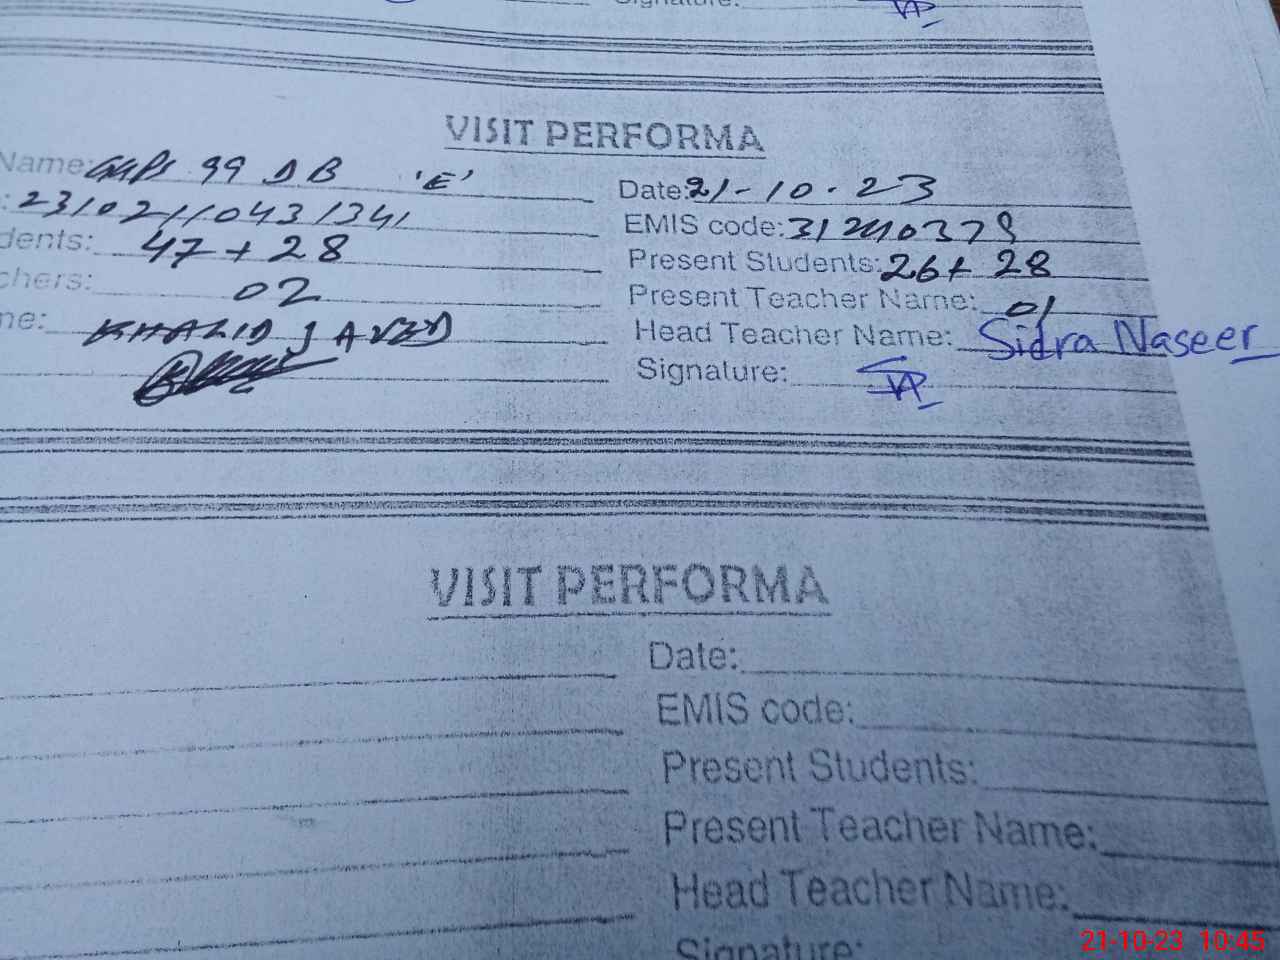 Signature:
VISIT PERFORMA
Name: GGPS 99 DB 'E' Date: 21-10-23
: 23102110431341 EMIS code: 31240379
dents: 47 + 28 Present Students: 26 + 28
chers: 02 Present Teacher Name: 01
me: KHALID JAVED Head Teacher Name: Sidra Naseer
Signature:
VISIT PERFORMA
Date:
EMIS code:
Present Students:
Present Teacher Name:
Head Teacher Name:
Signature:
21-10-23 10:45